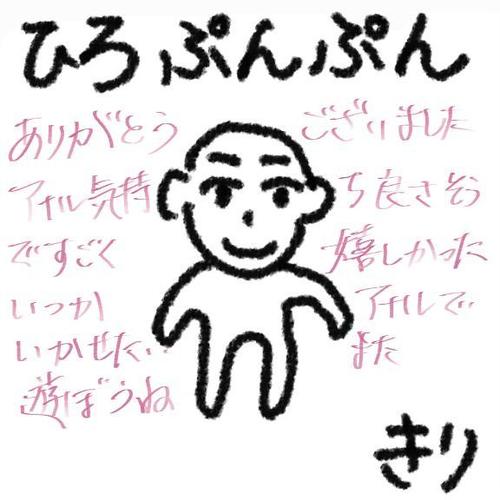 ひろぷんぷん
ありがとうございました
アナル気持ち良さそう
ですごく嬉しかった
いつかアナルで
いかせたい…また
遊ぼうね
きり